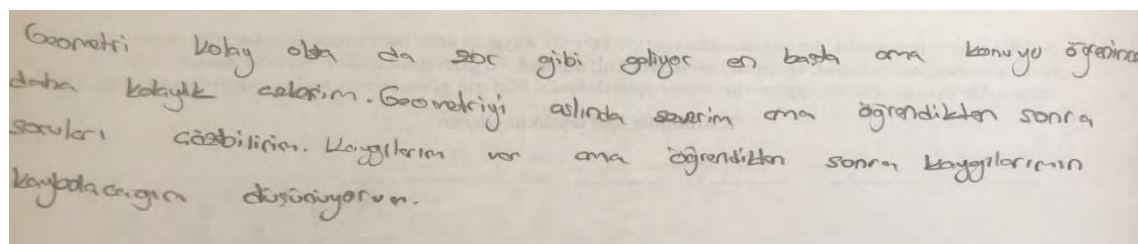 Geometri kolay olsa da zor gibi geliyor en başta ama konuyu öğenince
daha kolaylık çekerim. Geometriyi aslında severim ama öğrendikten sonra
soruları çözebilirim. Kaygılarım var ama öğrendikten sonra kaygılarımın
kaybolacağın düşünüyorum.